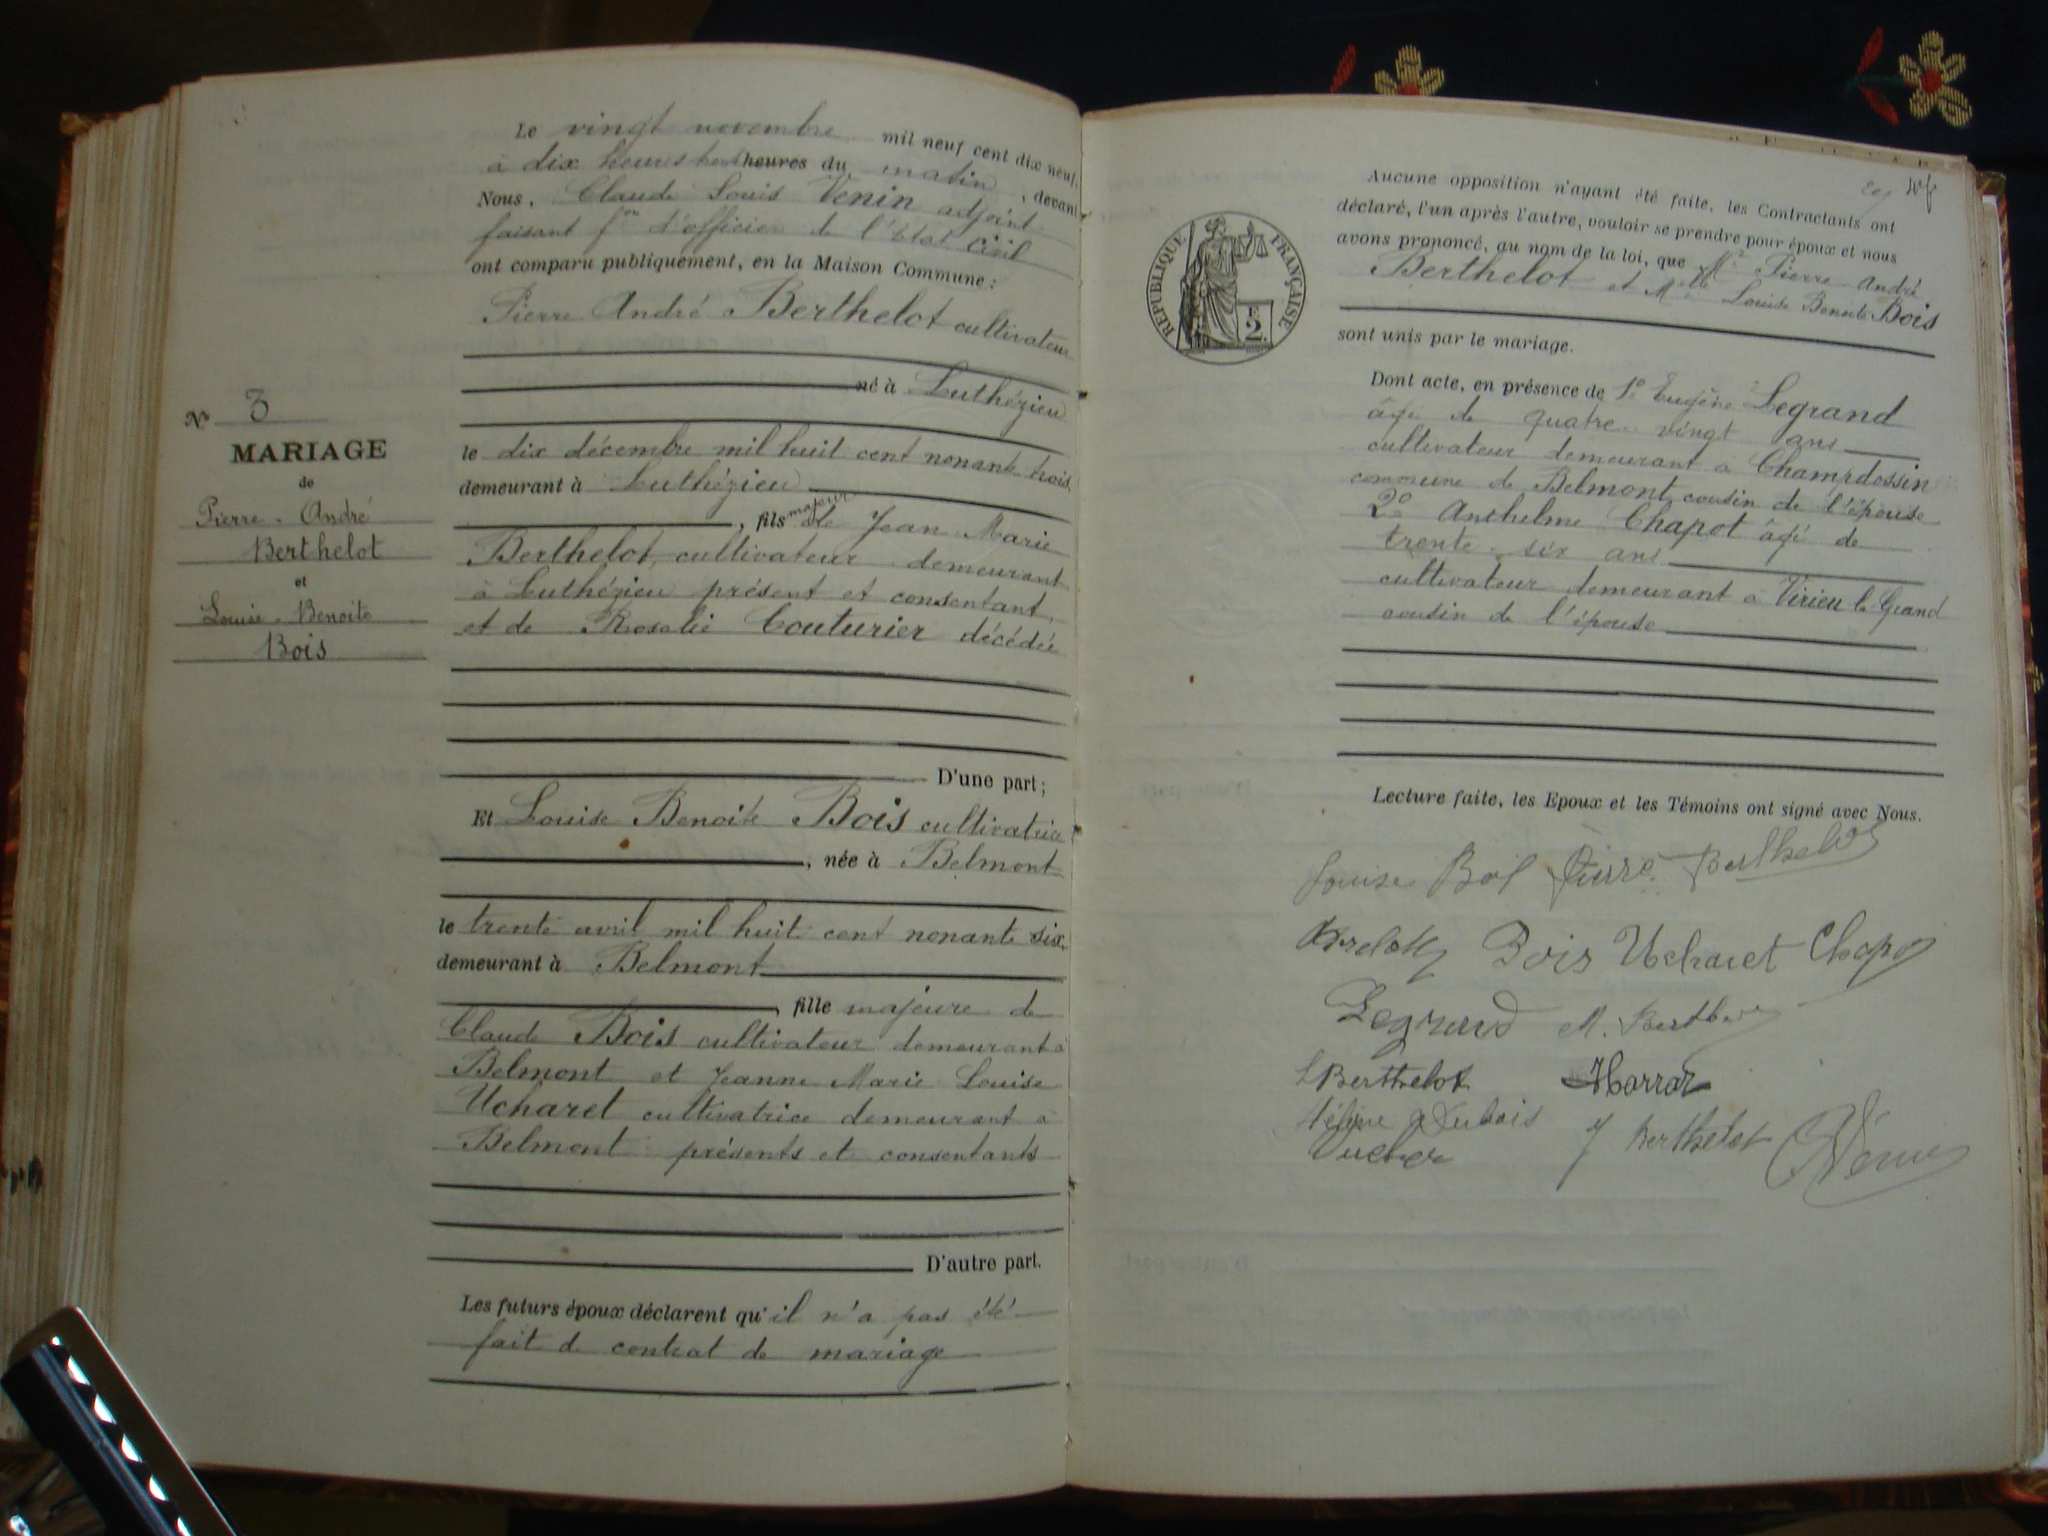 Le vingt novembre mil neuf cent dix neuf,
à dix heures heures du matin, devant
Nous, Claude Louis Venin adjoint
faisant f.on d'officier de l'Etat Civil
ont comparu publiquement, en la Maison Commune :
Pierre André Berthelot cultivateur
né à Luthézieu
le dix décembre mil huit cent nonante trois
demeurant à Luthézieu
, fils majeur de Jean Marie
Berthelot, cultivateur demeurant
à Luthézieu présent et consentant
et de Rosalie Couturier décédée
D'une part ;
Et Louise Benoite Bois cultivatrice
, née à Belmont
le trente avril mil huit cent nonante six
demeurant à Belmont
, fille majeure de
Claude Bois cultivateur demeurant à
Belmont et Jeanne Marie Louise
Ucharet cultivatrice demeurant à
Belmont présents et consentants
D'autre part.
Les futurs époux déclarent qu'il n'a pas été
fait de contrat de mariage
N° 3
MARIAGE
de
Pierre-André
Berthelot
et
Louise-Benoite
Bois
REPUBLIQUE FRANÇAISE
2F.
Aucune opposition n'ayant été faite, les Contractants ont
déclaré, l'un après l'autre, vouloir se prendre pour époux et nous
avons prononcé, au nom de la loi, que Mr Pierre André
Berthelot et Melle Louise Benoite Bois
sont unis par le mariage.
Dont acte, en présence de 1° Eugène Legrand
âgé de quatre vingt ans
cultivateur demeurant à Champdossin
commune de Belmont, cousin de l'épouse
2° Anthelme Chapot âgé de
trente-six ans
cultivateur demeurant à Virieu le Grand
cousin de l'épouse
Lecture faite, les Epoux et les Témoins ont signé avec Nous.
Louise Bois Pierre Berthelot
Bois Ucharet Chapot
Legrand M. Berthelot
L Berthelot
Dubois
J Berthelot